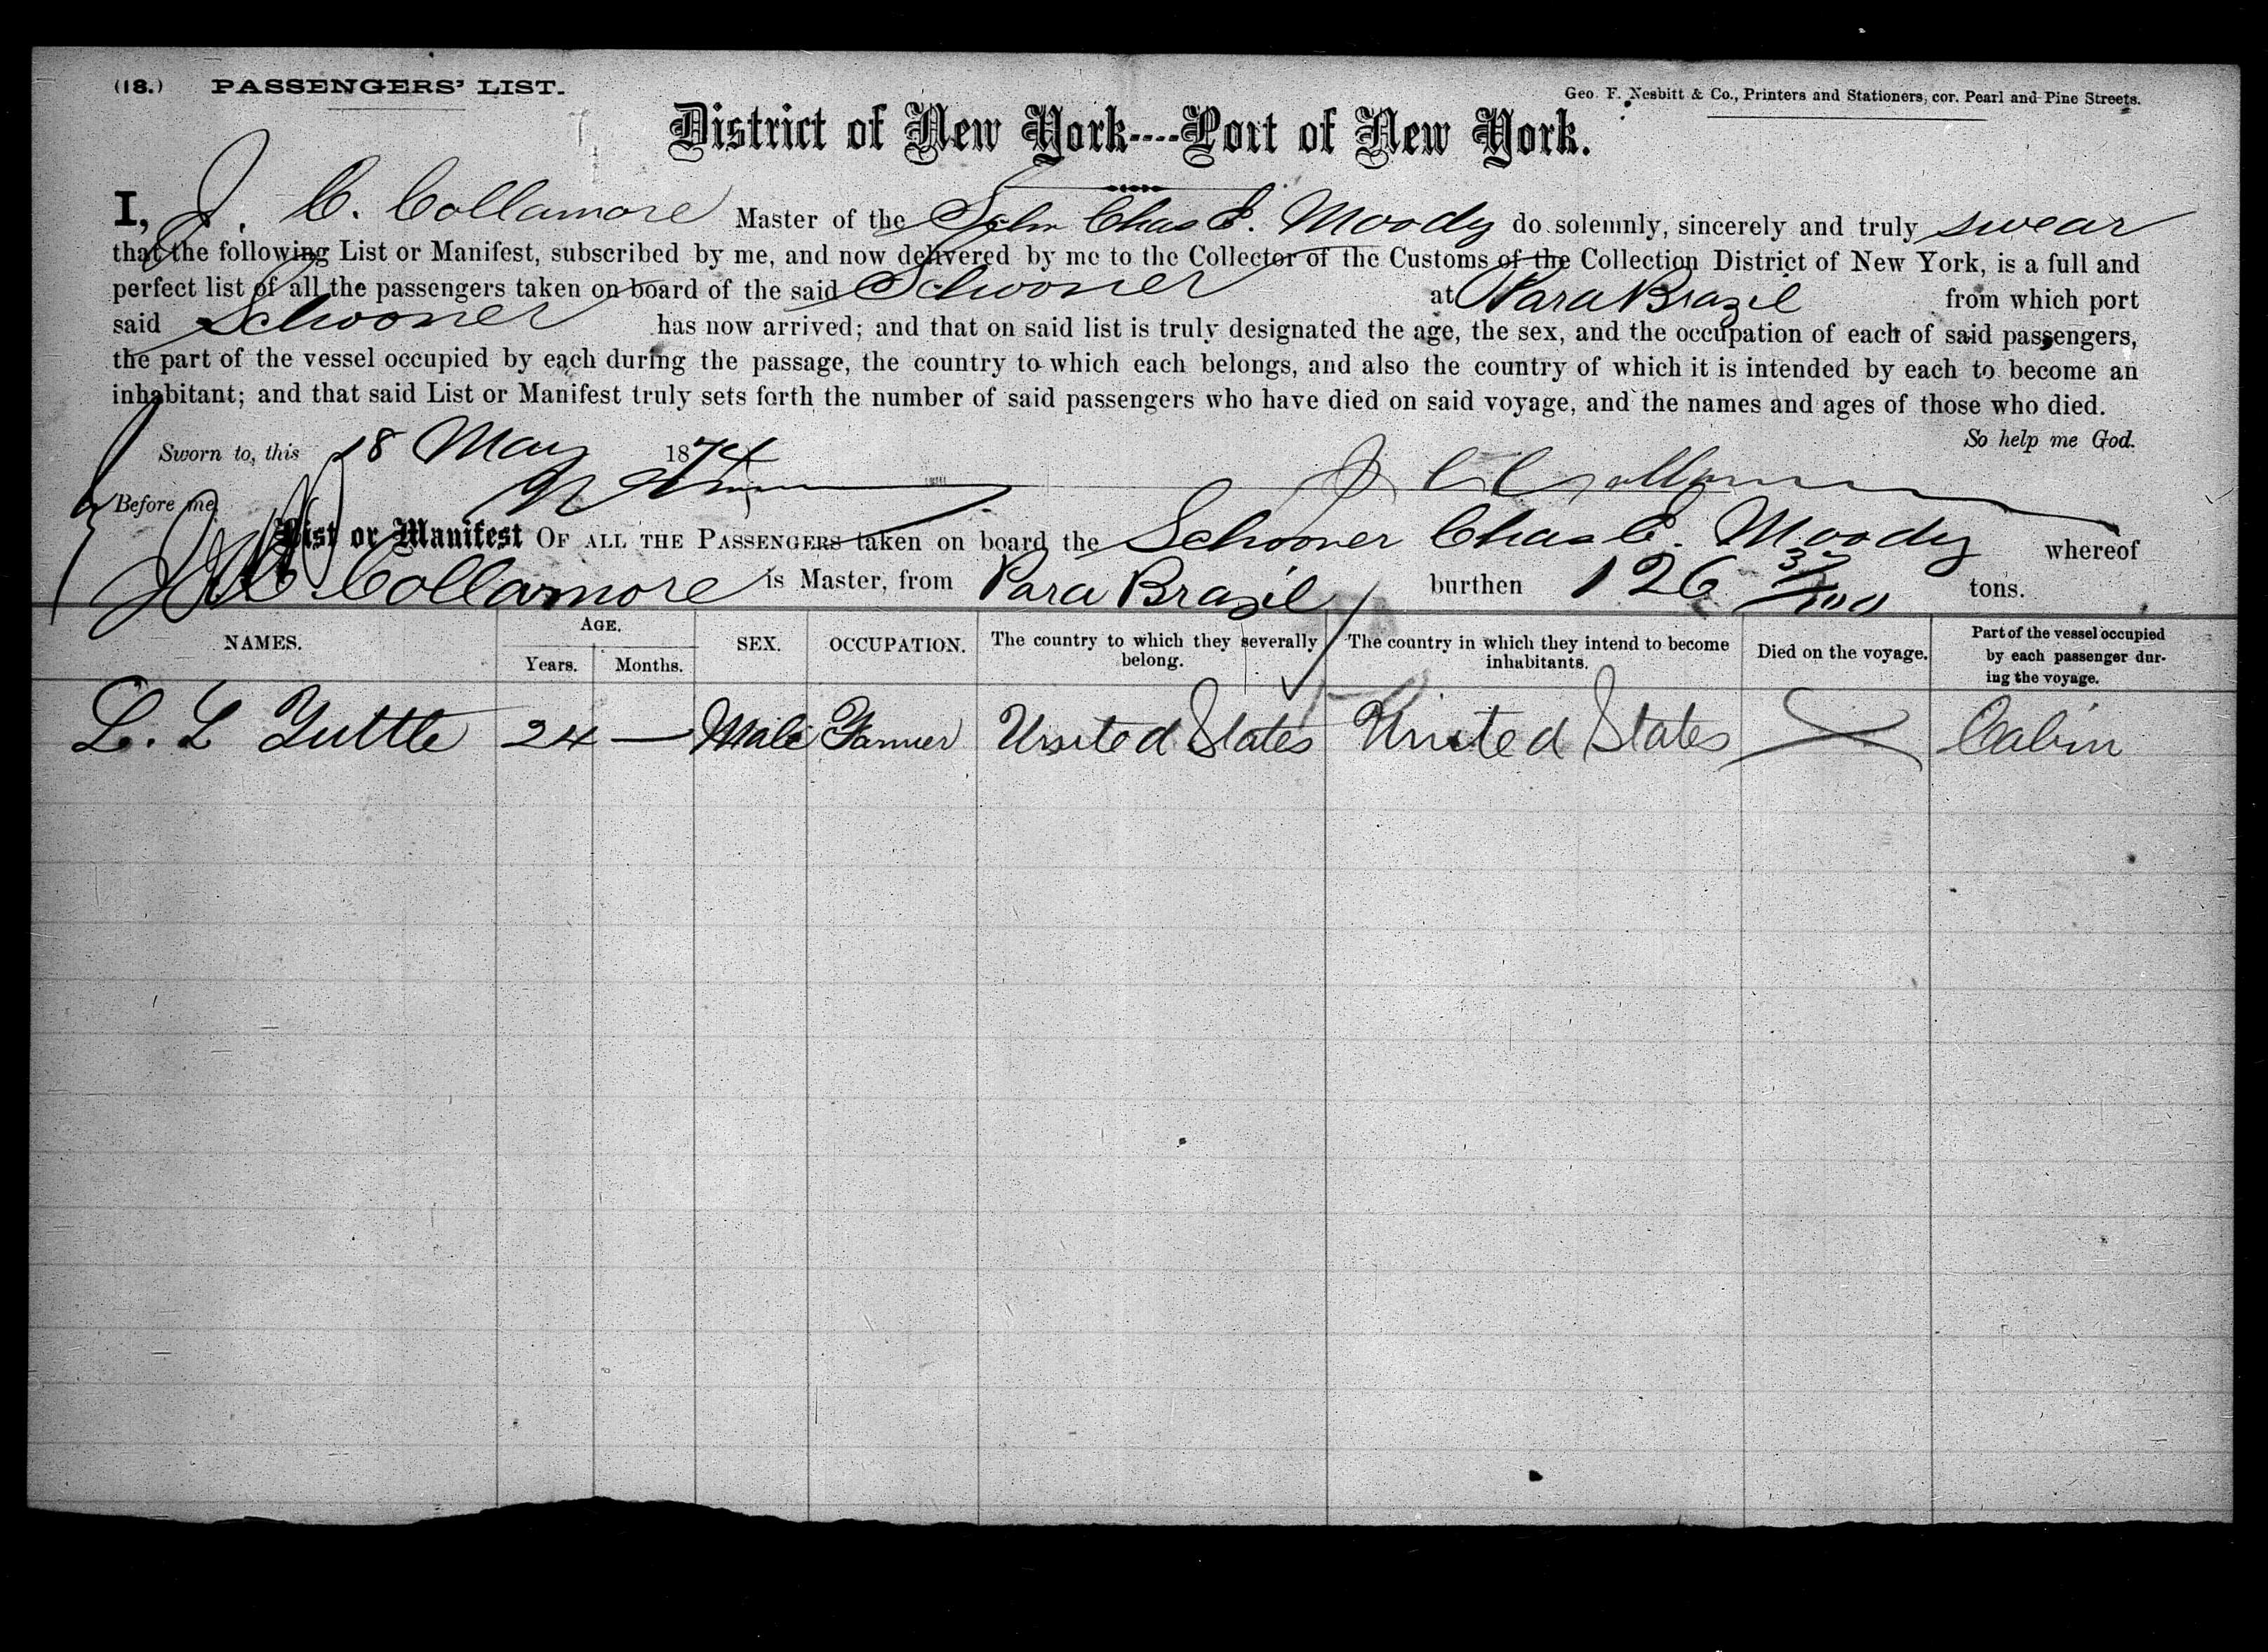 (18.) PASSENGERS' LIST.
Geo. F. Nesbitt & Co., Printers and Stationers, cor. Pearl and Pine Streets.
District of New York----Port of New York.
I, J. C. Collamore Master of the Schr Chas E. Moody do solemnly, sincerely and truly swear
that the following List or Manifest, subscribed by me, and now delivered by me to the Collector of the Customs of the Collection District of New York, is a full and
perfect list of all the passengers taken on board of the said Schooner at Para Brazil from which port
said Schooner has now arrived; and that on said list is truly designated the age, the sex, and the occupation of each of said passengers,
the part of the vessel occupied by each during the passage, the country to which each belongs, and also the country of which it is intended by each to become an
inhabitant; and that said List or Manifest truly sets forth the number of said passengers who have died on said voyage, and the names and ages of those who died.
So help me God.
Sworn to, this 18 May 1874
J C Collamore
Before me,
List or Manifest OF ALL THE PASSENGERS taken on board the Schooner Chas E. Moody whereof
J. C. Collamore is Master, from Para Brazil burthen 126 /100 tons.
NAMES. AGE. Years. Months. SEX. OCCUPATION. The country to which they severally belong. The country in which they intend to become inhabitants. Died on the voyage. Part of the vessel occupied by each passenger during the voyage.
L. L Tuttle 24 — Male Farmer United States United States Cabin